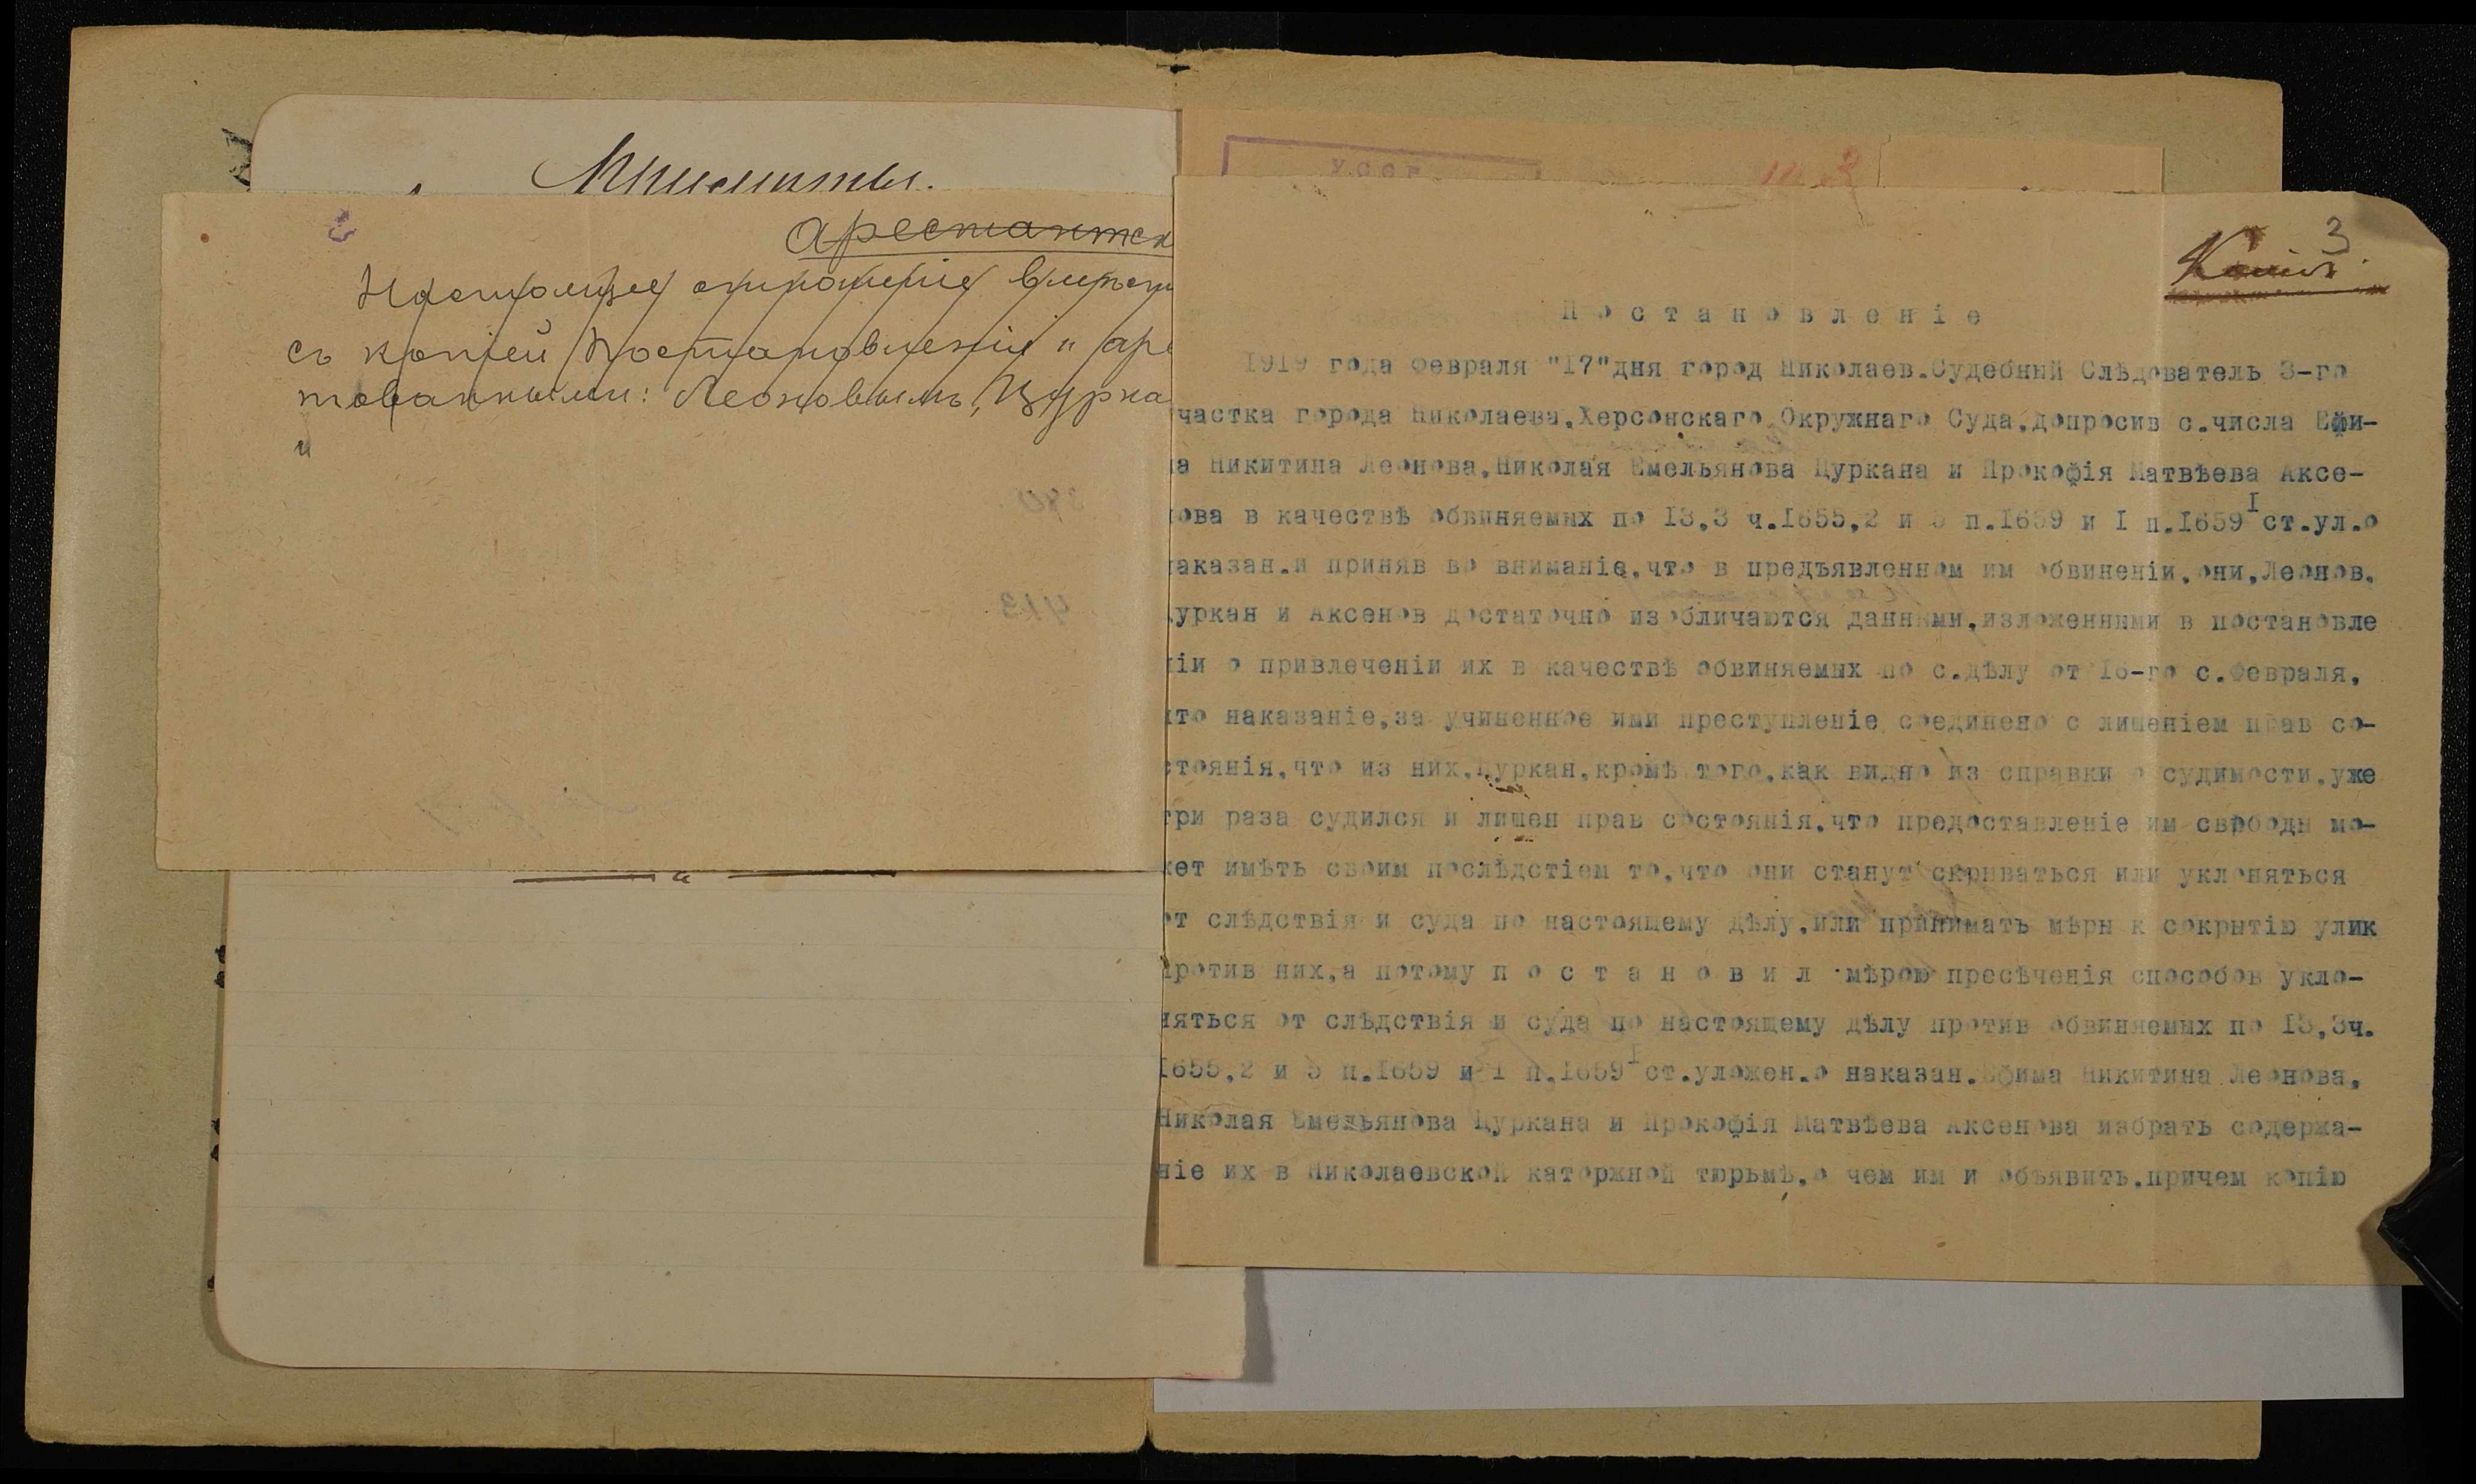 арестантск
Настоящее отношеніе вмѣст
съ копіей постановленія и аре
тованными: Леоновымъ, Цурка
и
УССР
3
Копія.
Постановленіе
1919 года февраля "17"дня город Николаев.Судебный Слѣдователь 3-го
частка города Николаева,Херсонскаго Окружнаго Суда,допросив с.числа Ефи-
а Никитина Леонова,Николая Емельянова Цуркана и Прокофія Матвѣева Аксе-
ова в качествѣ обвиняемых по 13,3 ч.1655,2 и 5 п.1659 и I п.1659 I ст.ул.о
аказан.и приняв во вниманіе,что в предъявленном им обвиненіи,они,Леонов,
уркан и Аксенов достаточно изобличаются данными,изложенными в постановле
іи о привлеченіи их в качествѣ обвиняемых по с.дѣлу от 16-го с.февраля,
что наказаніе,за учиненное ими преступленіе соединено с лишеніем прав со-
стоянія,что из них,Цуркан,кромѣ того,как видно из справки о судимости,уже
три раза судился и лишен прав состоянія,что предоставленіе им свободы мо-
жет имѣть своим послѣдстіем то,что они станут скрываться или уклоняться
от слѣдствія и суда по настоящему дѣлу,или принимать мѣры к сокрытію улик
против них,а потому п о с т а н о в и л мѣрою пресѣченія способов укло-
няться от слѣдствія и суда по настоящему дѣлу против обвиняемых по 13,3ч.
1655,2 и 5 п.1659 и I п.1659 I ст.уложен.о наказан.Ефима Никитина Леонова,
Николая Емельянова Цуркана и Прокофія Матвѣева Аксенова избрать содержа-
ніе их в Николаевской каторжной тюрьмѣ,о чем им и объявить,причем копію